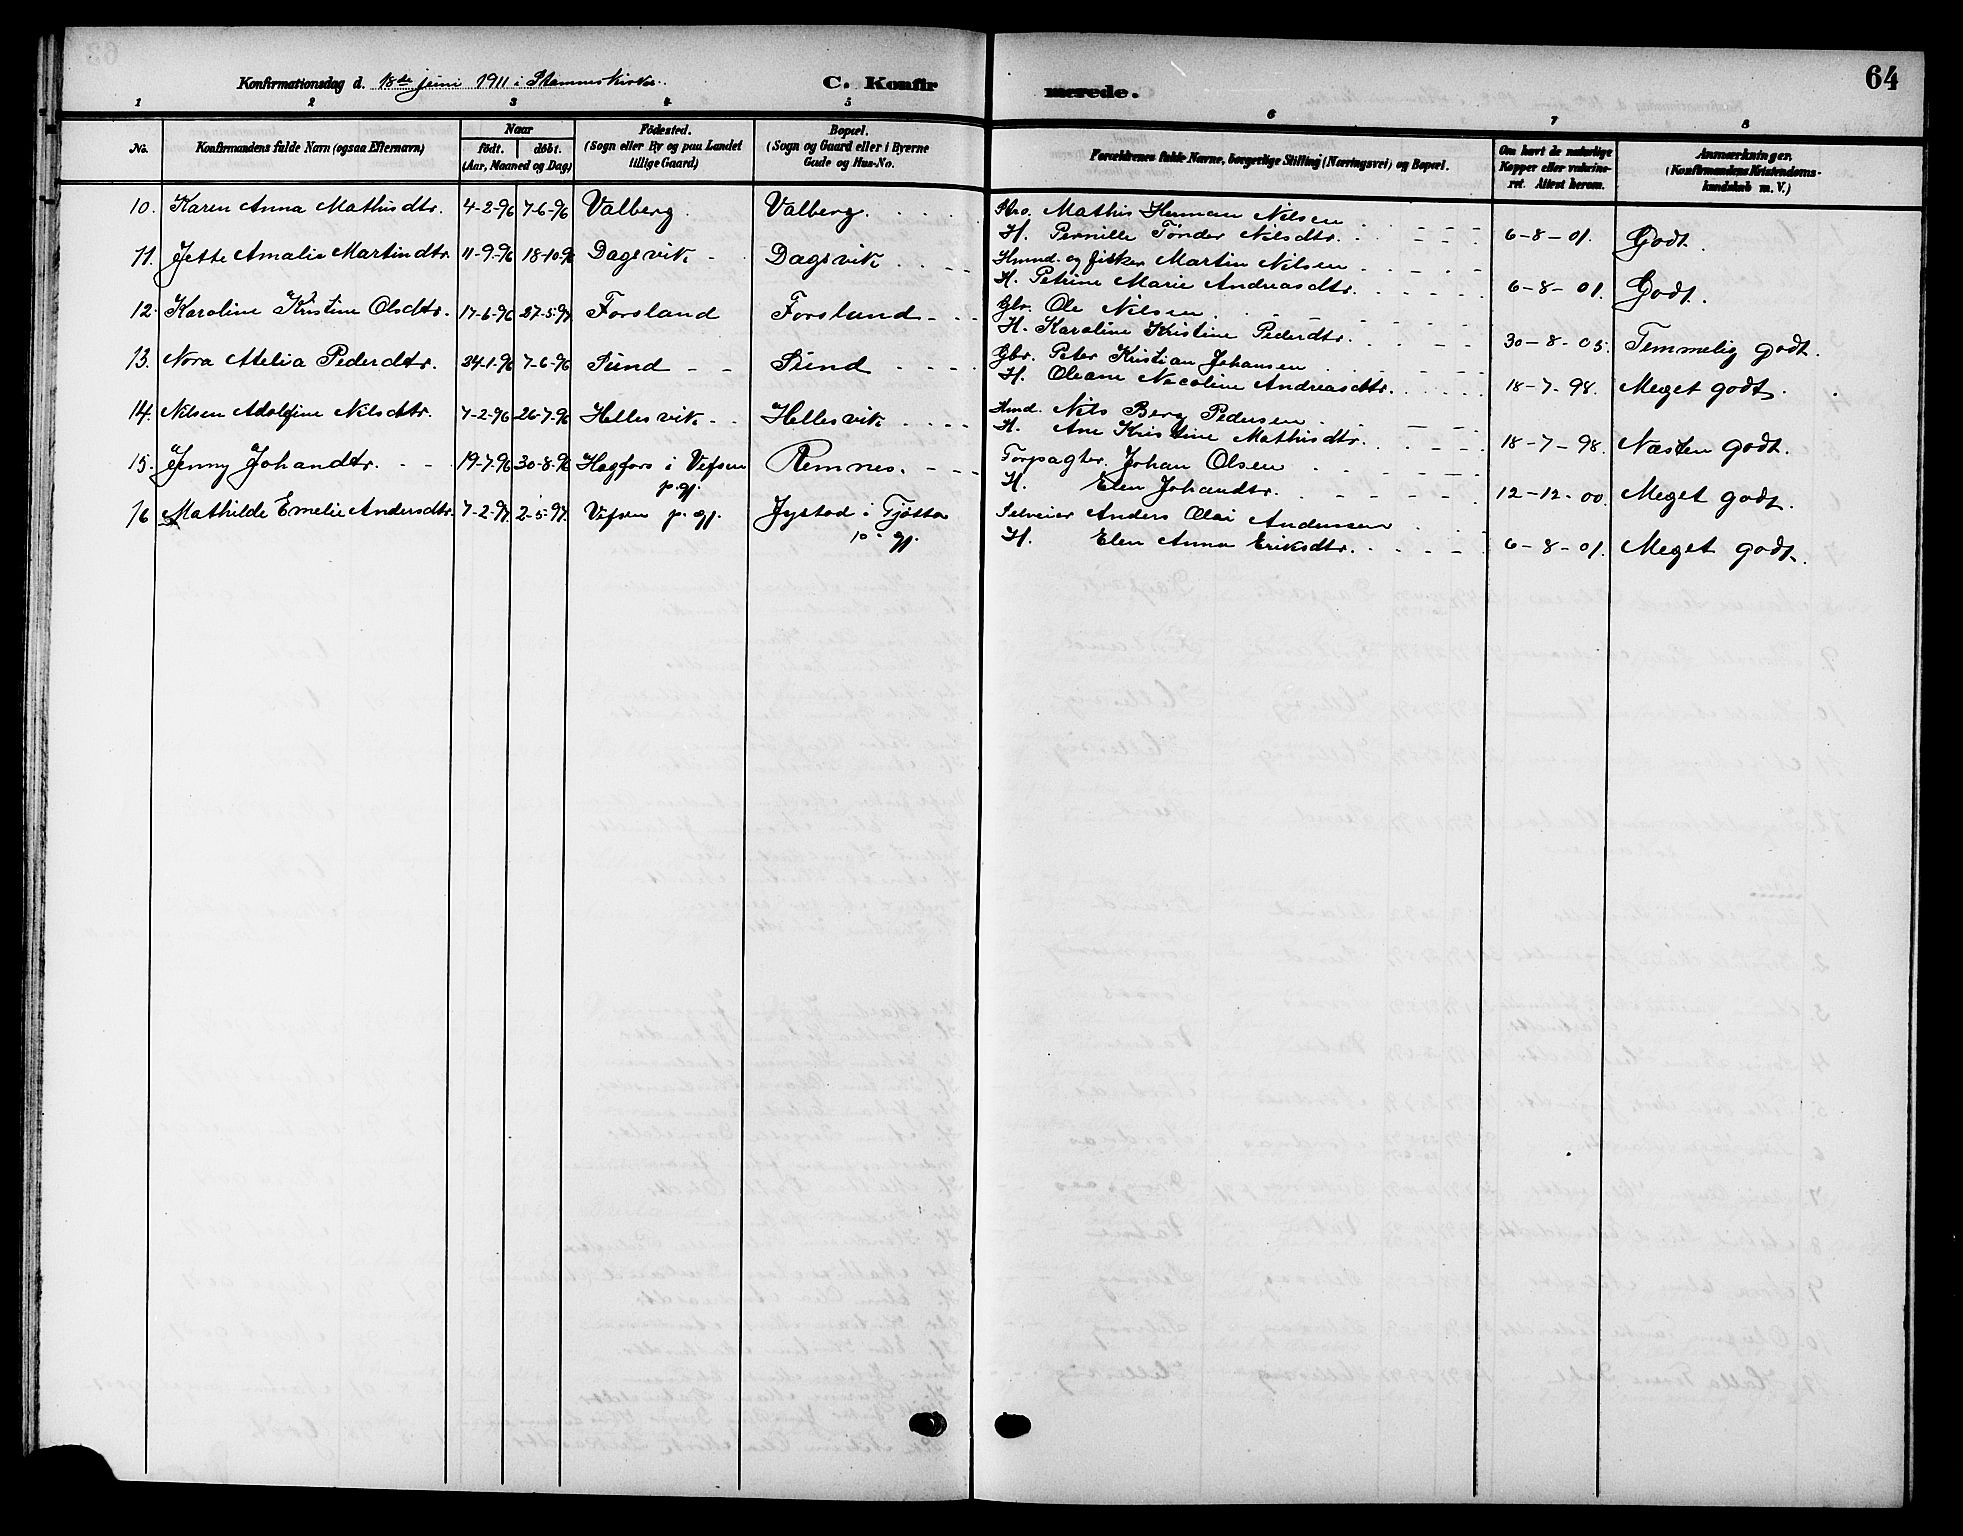 64
Konfirmationsdag d. 18de juni 1911 i Stamneskirke. C. Konfirmerede.
1 2 3 4 5 6 7 8
No. Konfirmandens fulde Navn (ogsaa Efternavn) Naar født. døbt. (Aar, Maaned og Dag) Fødested. (Sogn eller By og paa Landet tillige Gaard) Bopæl. (Sogn og Gaard eller i Byerne Gade og Hus-No. Forældrenes fulde Navne, borgerlige Stilling (Næringsvei) og Bopæl. Om havt de naturlige Kopper eller vaccineret. Attest herom. Anmærkninger. (Konfirmandens Kristendomskundskab m. V.)
10. Karen Anna Mathisdtr. 4-2-96 7-6-96 Valberg. Valberg. Mathis Herman Nilsen
H. Pernille Tønder Nilsdtr. 6-8-01. Godt.
11. Jette Amalie Martindtr. 11-9-96 18-10-96 Dagsvik Dagsvik Hmnd. og fisker Martin Nilsen
H. Petrine Marie Andreasdtr. 6-8-01. Godt.
12. Karoline Kristine Olsdtr. 17-6-96 27-5-97 Forsland Forsland Gbr. Ole Nilsen
H. Karoline Kristine Pederdtr. 30-8-05. Temmelig godt.
13. Nora Atelia Pederdtr. 24-1-96 7-6-96 Sund Sund Gbr. Peter Kristian Johansen
H. Oleane Nicoline Andreasdtr. 18-7-98. Meget godt.
14. Nilsen Adolfine Nilsdtr. 7-2-96 26-7-96 Hellesvik Hellesvik Hmd. Nils Berg Pedersen
H. Ane Kristine Mathisdtr. 18-7-98. Næsten godt.
15. Jenny Johandtr. 19-7-96 30-8-96 Hagfors i Vefsen p.gj. Remnes. Forpagter Johan Olsen
H. Elen Johandtr. 12-12-00 Meget godt.
16 Mathilde Emelie Andersdtr. 7-2-97 2-5-97. Vefsen p. gj. Jystad i Tjøtta p. gj. Selveier Anders Olai Andersen
H. Elen Anna Eriksdtr. 6-8-01. Meget godt.